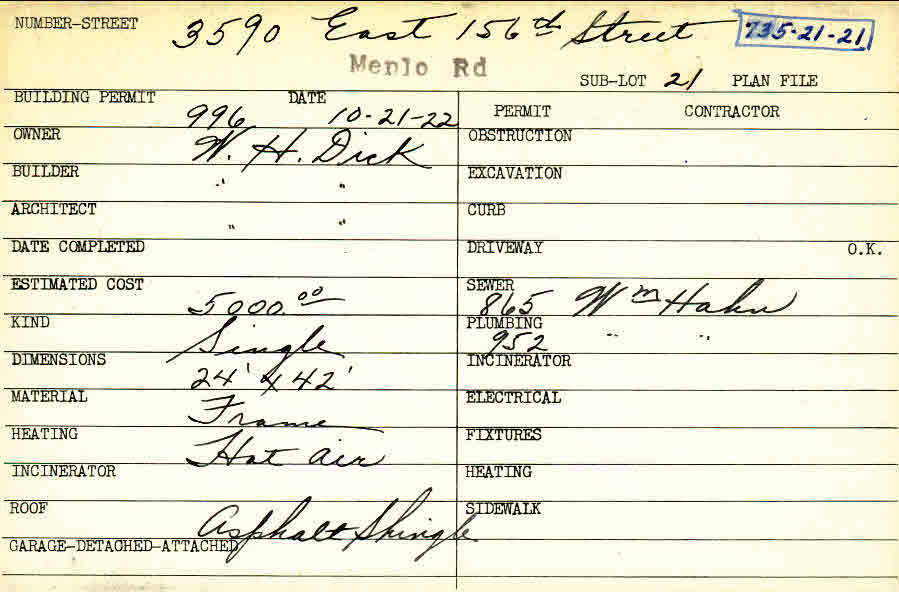 NUMBER-STREET 3590 East 156th Street 735-21-21
Menlo Rd
SUB-LOT 21 PLAN FILE
BUILDING PERMIT 996 DATE 10-21-22 PERMIT CONTRACTOR
OWNER W. H. Dick OBSTRUCTION
BUILDER " " EXCAVATION
ARCHITECT " " CURB
DATE COMPLETED DRIVEWAY O.K.
ESTIMATED COST 5000.00 SEWER 865 Wm Hahn
KIND Single PLUMBING 952 " "
DIMENSIONS 24' x 42' INCINERATOR
MATERIAL Frame ELECTRICAL
HEATING Hot air FIXTURES
INCINERATOR HEATING
ROOF Asphalt Shingle SIDEWALK
GARAGE-DETACHED-ATTACHED